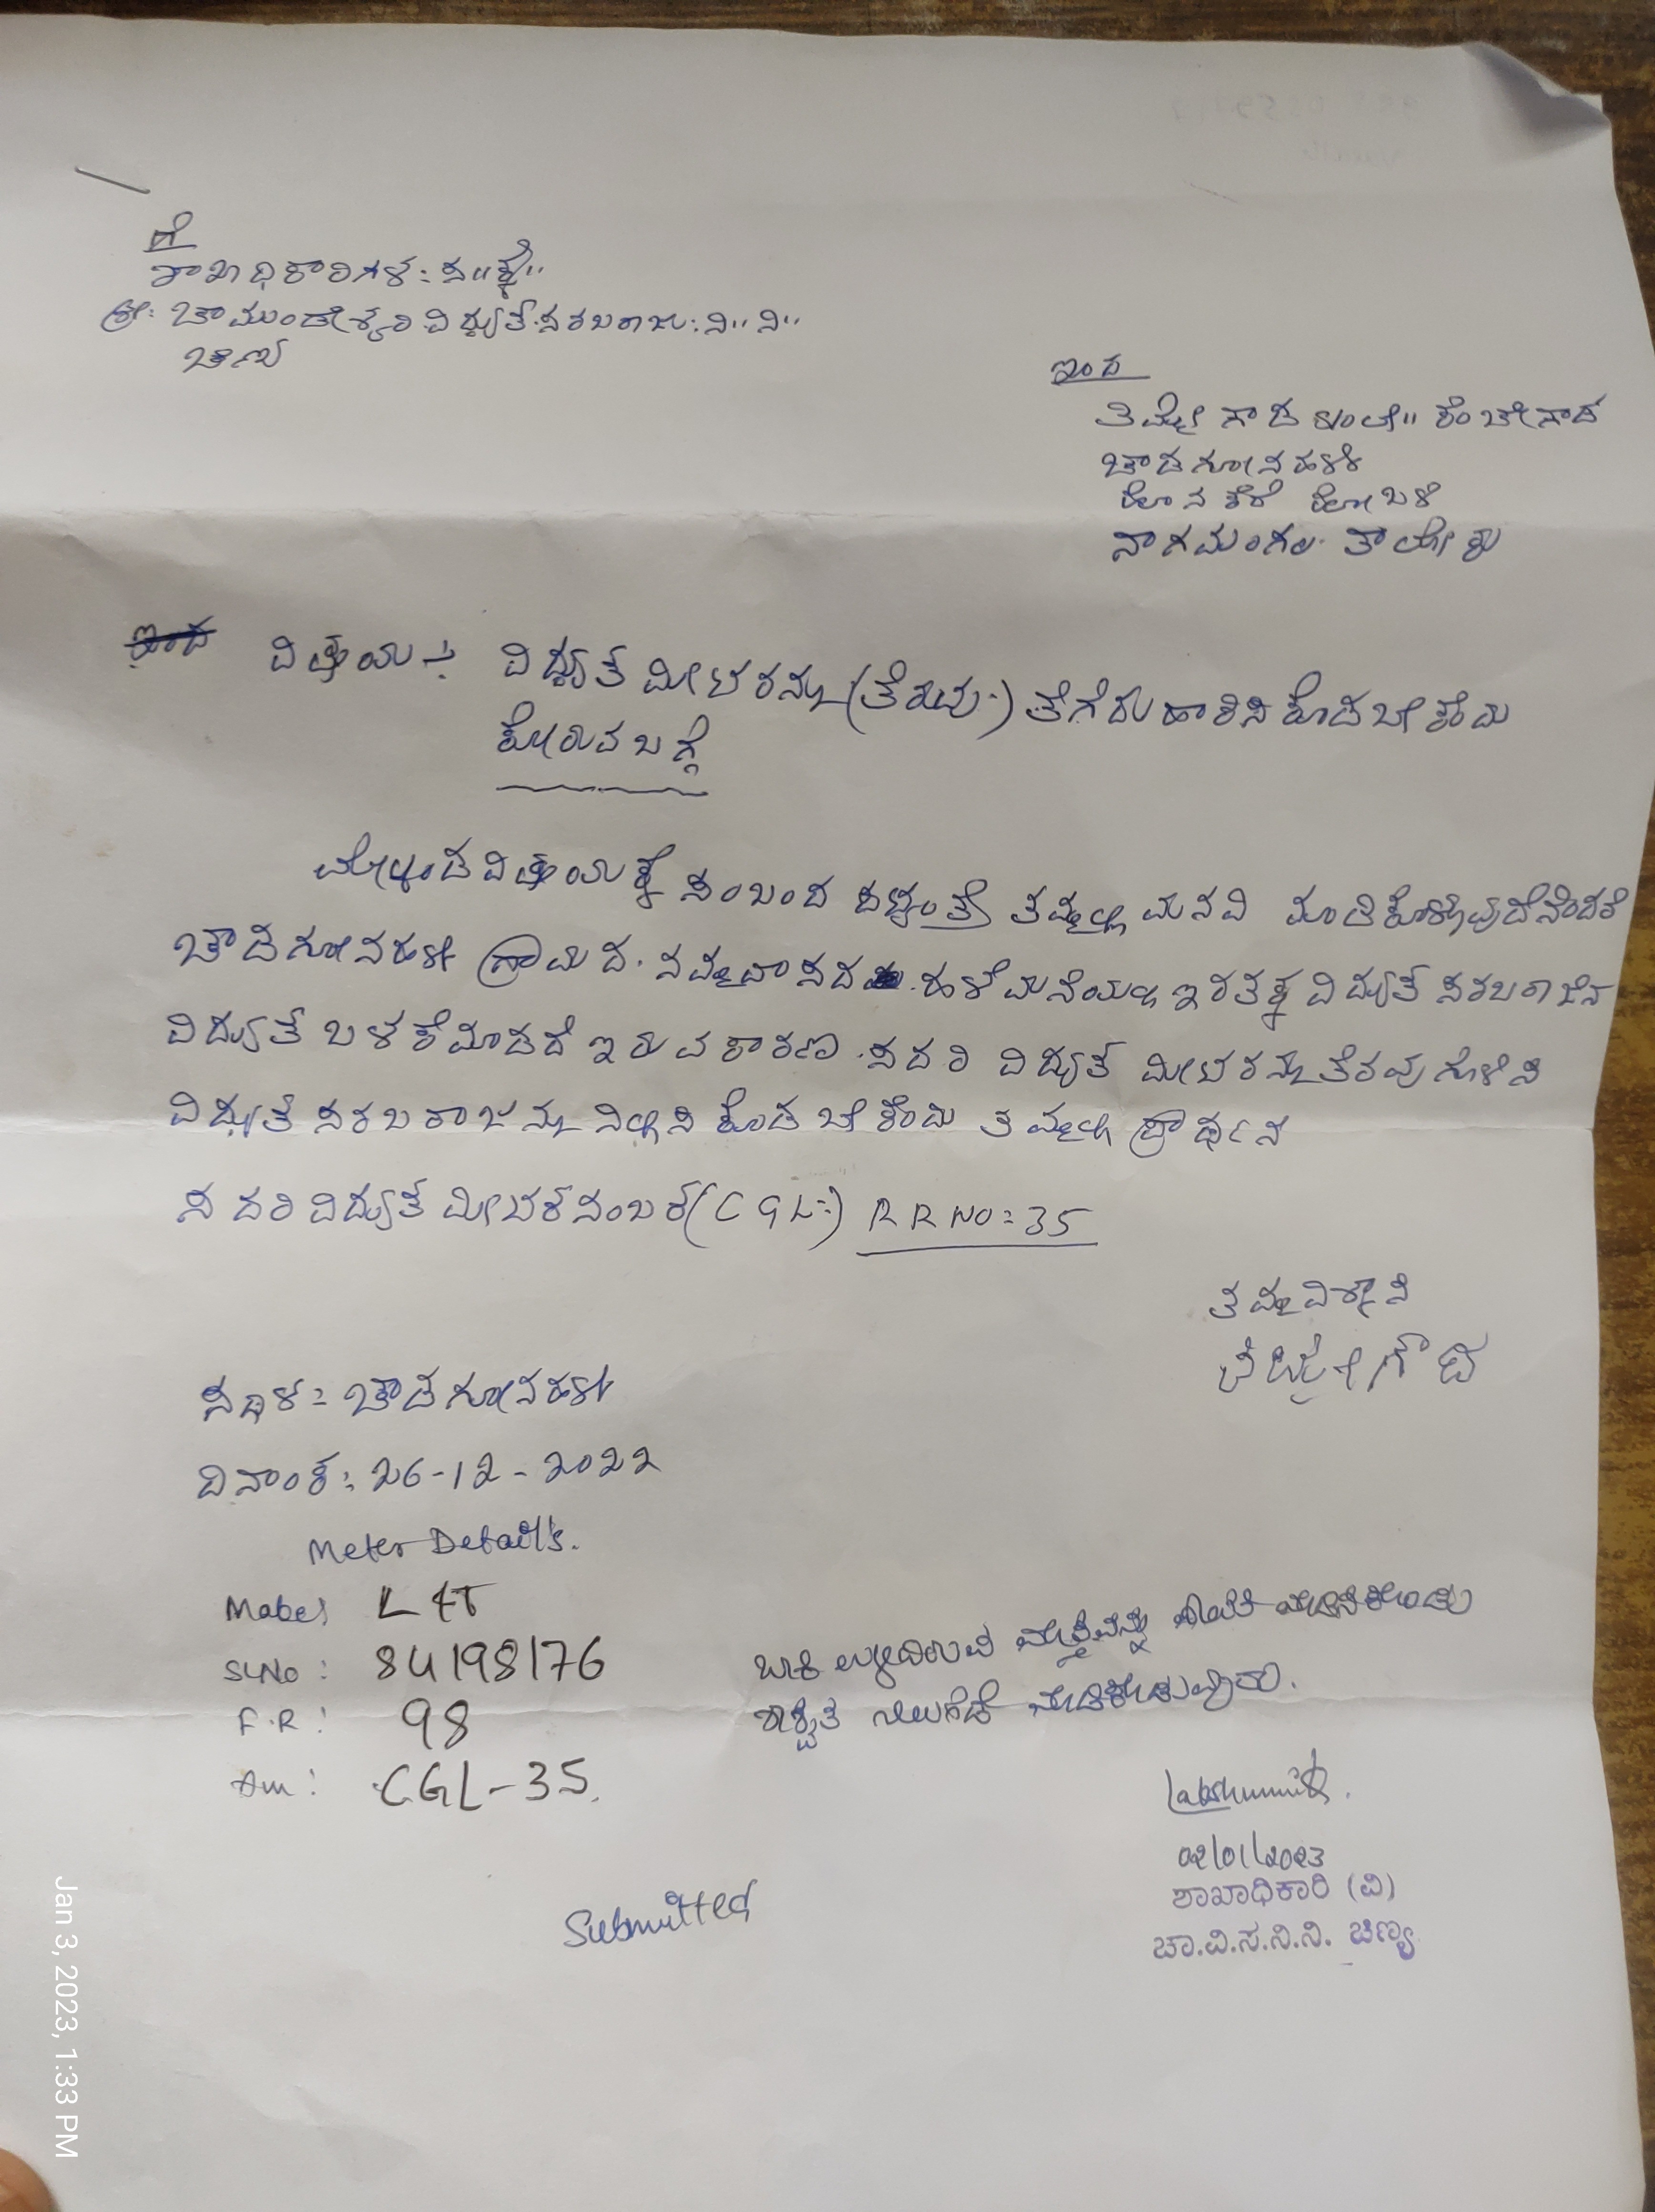 ಗೆ
ಶಾಖಾಧಿಕಾರಿಗಳ: ಸ||ಕ್ಕೆ||
ಶ್ರೀ: ಚಾಮುಂಡೇಶ್ವರಿ ವಿದ್ಯುತ್ ಸರಬರಾಜು: ನಿ|| ನಿ||
ಚಿಣ್ಯ
ಇಂದ
ತಿಮ್ಮೇಗೌಡ ಕೆಂಚೇಗೌಡ
ಚೌಡಗೋನಹಳ್ಳಿ
ಹೊನಕೆರೆ ಹೋಬಳಿ
ನಾಗಮಂಗಲ ತಾಲ್ಲೋಕು
ವಿಷಯ :- ವಿದ್ಯುತ್ ಮೀಟರನ್ನು (ತೆರವು) ತೆಗೆದು ಕೊಡಬೇಕೆಂದು
ಕೋರುವ ಬಗ್ಗೆ
ಮೇಲ್ಕಂಡ ವಿಷಯಕ್ಕೆ ಸಂಬಂದ ತಮ್ಮಲ್ಲಿ ಮನವಿ ಮಾಡಿಕೊಳ್ಳುವುದೆನೆಂದರೆ
ಚೌಡಗೋನಹಳ್ಳಿ ಗ್ರಾಮದ. ನಮ್ಮ ವಾಸದ ಹಳೆ ಮನೆಯಲ್ಲಿ ಇರತಕ್ಕ ವಿದ್ಯುತ್ ಸರಬರಾಜಿನ
ವಿದ್ಯುತ್ ಬಳಕೆ ಮಾಡದೆ ಇರುವ ಕಾರಣ. ಸದರಿ ವಿದ್ಯುತ್ ಮೀಟರನ್ನು ತೆರವುಗೊಳಿಸಿ
ವಿದ್ಯುತ್ ಸರಬರಾಜನ್ನು ನಿಲ್ಲಿಸಿ ಕೊಡಬೇಕೆಂದು ತಮ್ಮಲ್ಲಿ ಪ್ರಾರ್ಥನೆ
ಸದರಿ ವಿದ್ಯುತ್ ಮೀಟರ್ ನಂಬರ್ (CGL:-) RR NO = 35
ತಮ್ಮ ವಿಶ್ವಾಸಿ
ತಿಮ್ಮೇಗೌಡ
ಸ್ಥಳ = ಚೌಡಗೋನಹಳ್ಳಿ
ದಿನಾಂಕ = 26-12-2022
Meter Details.
Make: L&T
Sl.No : 84198176
F.R : 98
CGL-35.
ಬಾಕಿ ಉಳಿದಿರುವ ಮೊತ್ತವನ್ನು
ಶಾಶ್ವತ ನಿಲುಗಡೆ
Submitted
02/01/2023
ಶಾಖಾಧಿಕಾರಿ (ವಿ)
ಚಾ.ವಿ.ಸ.ನಿ.ನಿ. ಚಿಣ್ಯ
Jan 3, 2023, 1:33 PM